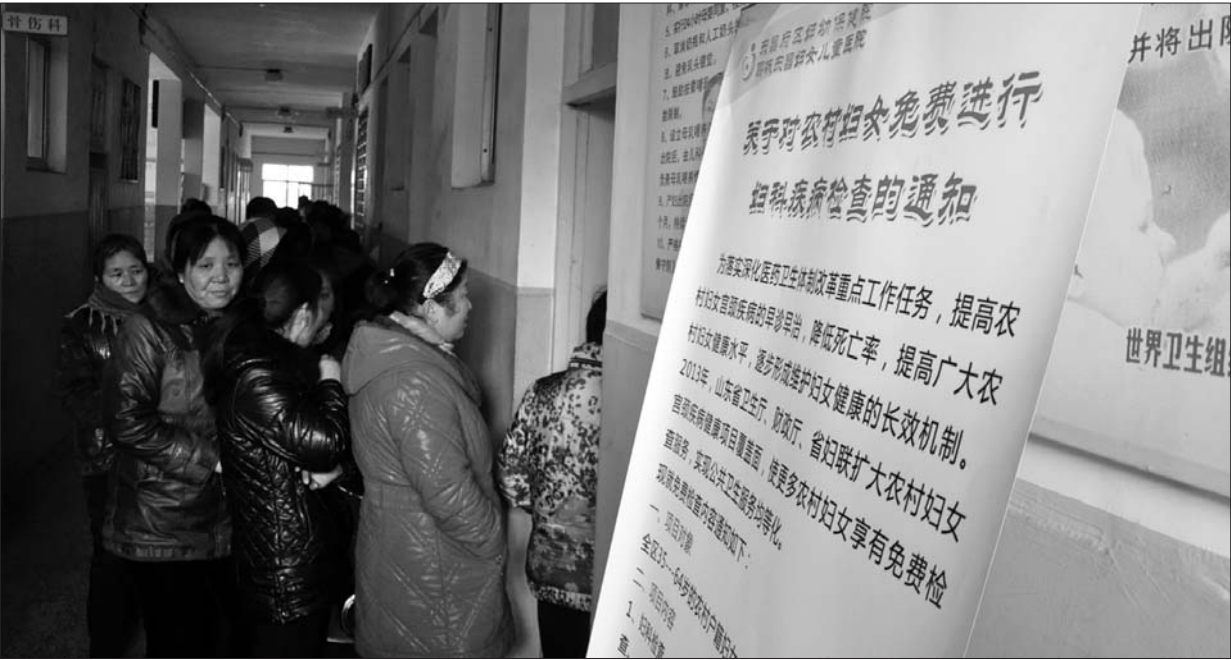 骨伤科
5、实行24小时母婴同室。
6、
8、
9、
10、严格
妇幼保健院
妇女儿童医院
关于对农村妇女免费进行
妇科疾病检查的通知
为落实深化医药卫生体制改革重点工作任务，提高农
村妇女宫颈疾病的早诊早治，降低死亡率，提高广大农
村妇女健康水平，逐步形成维护妇女健康的长效机制。
2013年，山东省卫生厅、财政厅、省妇联扩大农村妇女
宫颈疾病健康项目覆盖面，使更多农村妇女享有免费检
查服务，实现公共卫生服务均等化。
现就免费检查内容通知如下：
一、项目对象
全区35--64岁的农村户籍妇女
二、项目内容
1、妇科检查
查、
并将出院
世界卫生组